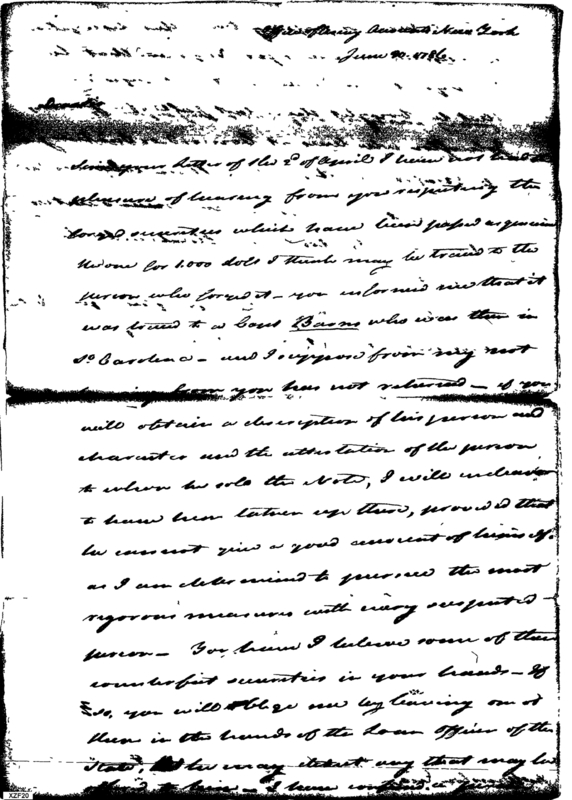 Office of Army Accounts New York
June 20. 1786
Since your letter of the 2d of April I have not had the
pleasure of hearing from you respecting the
forged securities which have been passed as genuine
the one for 1.000 dolls I think may be traced to the
person who forged it – you informed me that it
was traced to a Capt Barns who was then in
So Carolina – and I suppose from my not
hearing from you has not returned – if you
will obtain a description of his person and
character and the attestation of the person
to whom he sold the Note, I will endeavor
to have him taken up there, provided that
he cannot give a good account of himself.
as I am determined to pursue the most
rigorous measures with every suspected
person – You have I believe some of these
counterfeit securities in your hands – If
so, you will oblige me by leaving one of
them in the hands of the Loan Officer of the
State, he may detect any that may be
offered to him – I have
XZF20